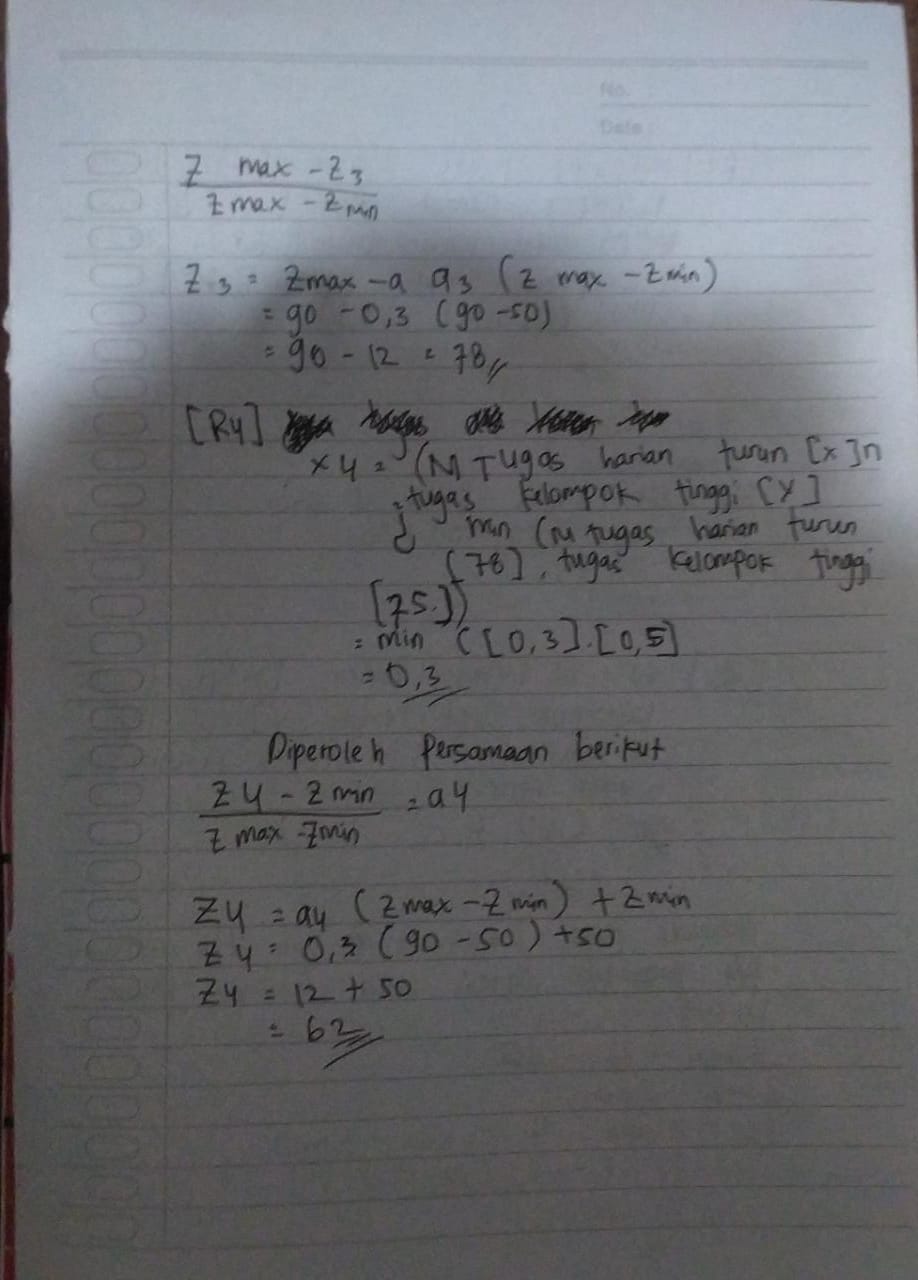 No.
Date
Z max - Z3
Z max - Z min
Z3 = Zmax - a a3 (Z max - Zmin)
= 90 - 0,3 (90-50)
= 90 - 12 = 78
[R4]
x4 = (M Tugas harian turun [x] n
tugas kelompok tinggi [Y]
min (M tugas harian turun
[78], tugas kelompok tinggi
[75])
= min ([0,3].[0,5]
= 0,3
Diperoleh Persamaan berikut
Z4 - Z min = a4
Z max - Zmin
Z4 = a4 (Zmax - Zmin) + Zmin
Z4 = 0,3 (90 - 50) +50
Z4 = 12 + 50
= 62